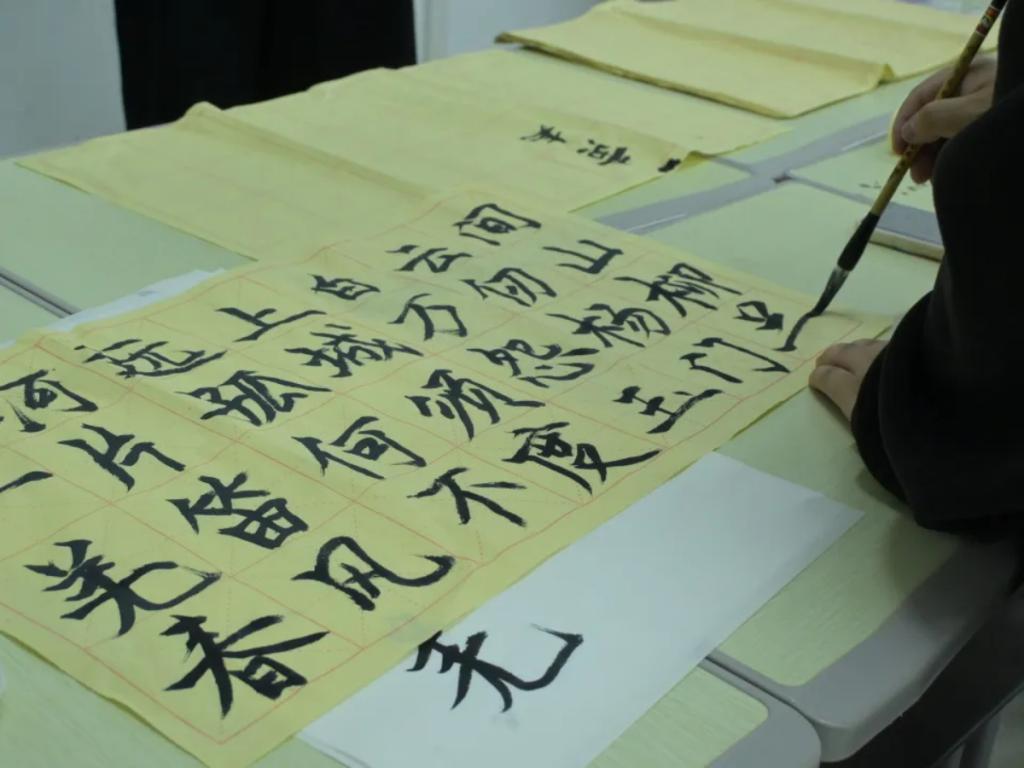 河远上白云间
一片孤城万仞山
羌笛何须怨杨柳
春风不度玉门